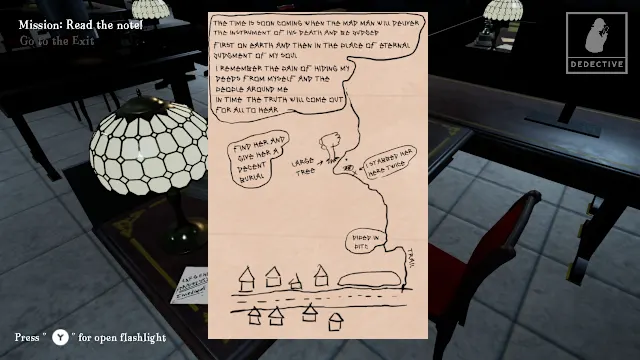 Mission: Read the note!
Go to the Exit
DEDECTIVE
THE TIME IS SOON COMING WHEN THE MAD MAN WILL DELIVER
THE INSTRUMENT OF HIS DEATH AND BE JUDGED
FIRST ON EARTH AND THEN IN THE PLACE OF ETERNAL
JUDGMENT OF MY SOUL
I REMEMBER THE PAIN OF HIDING MY
DEEDS FROM MYSELF AND THE
PEOPLE AROUND ME
IN TIME THE TRUTH WILL COME OUT
FOR ALL TO HEAR
FIND HER AND
GIVE HER A
DECENT
BURIAL
LARGE
TREE
I STABBED HER
HERE TWICE
TRAIL
Press " Y " for open flashlight